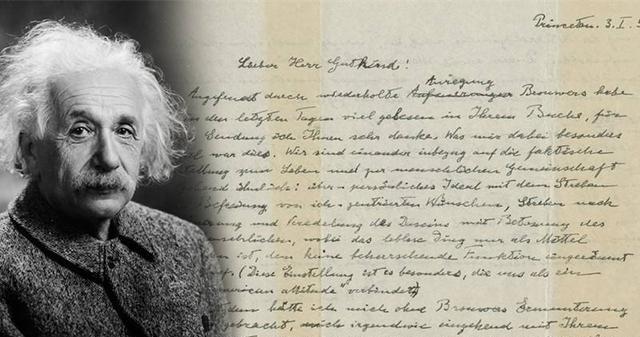 Princeton. 3. I.
Lieber Herr Gutkind!
Anregung
Angefeuert durch wiederholte Brouwers habe
den letzten Tagen viel gelesen in Ihrem Buche, für
Sendung ich Ihnen sehr danke. Was mir dabei besonders
war dies. Wir sind einander inbezug auf die faktische
zum Leben und zur menschlichen Gemeinschaft
ähnlich: über-persönliches Ideal mit dem Streben
von ich-zentrierten Wünschen, Streben nach
und Veredelung des Daseins mit Betonung des
wobei das leblose Ding nur als Mittel
ist, dem keine beherrschende Funktion eingeräumt
(Diese Einstellung ist es besonders, die uns als ein
attitude" verbindet)
hätte ich mich ohne Brouwers Ermunterung
gebracht, mich irgendwie eingehend mit Ihrem